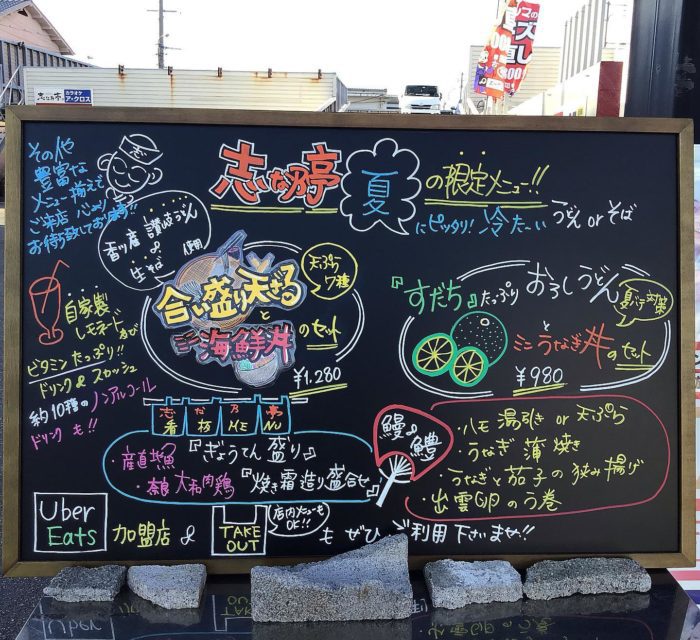 志な乃亭 夏の限定メニュー!!
にピッタリ!冷た〜い うどん or そば
その他
豊富な
メニュー揃えて
ご来店 心より
お待ち致しております!!
香川産 讃岐うどん
&
生そば 使用
合い盛り天ざる
と
ミニ海鮮丼のセット
¥1,280
天ぷら
7種
『すだち』たっぷり おろしうどん
と
ミニうなぎ丼のセット
¥980
夏バテ対策
自家製
レモネード及び
ビタミンたっぷり!!
ドリンク & スカッシュ
約10種のノンアルコール
ドリンクも!!
・産直地魚『ぎょうてん盛り』
・奈良大和肉鶏『焼き霜造り盛合せ』
鰻&鱧
・ハモ 湯引き or 天ぷら
・うなぎ 蒲焼き
・うなぎと茄子の挟み揚げ
・出雲卵のう巻
Uber
Eats
加盟店 &
TAKE
OUT
店内メニューも
OK!!
もぜひ、ご利用下さいませ!!
志な乃亭
カラオケ
ア・クロス